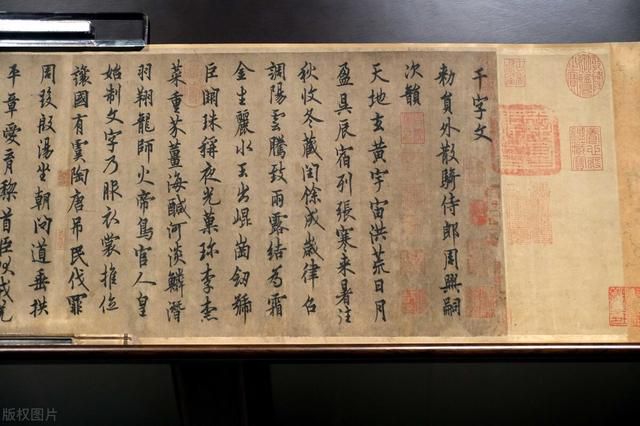 千字文
勑員外散騎侍郎周興嗣
次韻
天地玄黃宇宙洪荒日月
盈昃辰宿列張寒来暑往
秋收冬藏閏餘成歲律召
調陽雲騰致雨露結為霜
金生麗水玉出崐崗劒號
巨闕珠稱夜光菓珎李柰
菜重芥薑海醎河淡鱗潛
羽翔龍師火帝鳥官人皇
始制文字乃服衣裳推位
讓國有虞陶唐弔民伐罪
周發殷湯坐朝問道垂拱
平章愛育黎首臣伏戎羌
版权图片